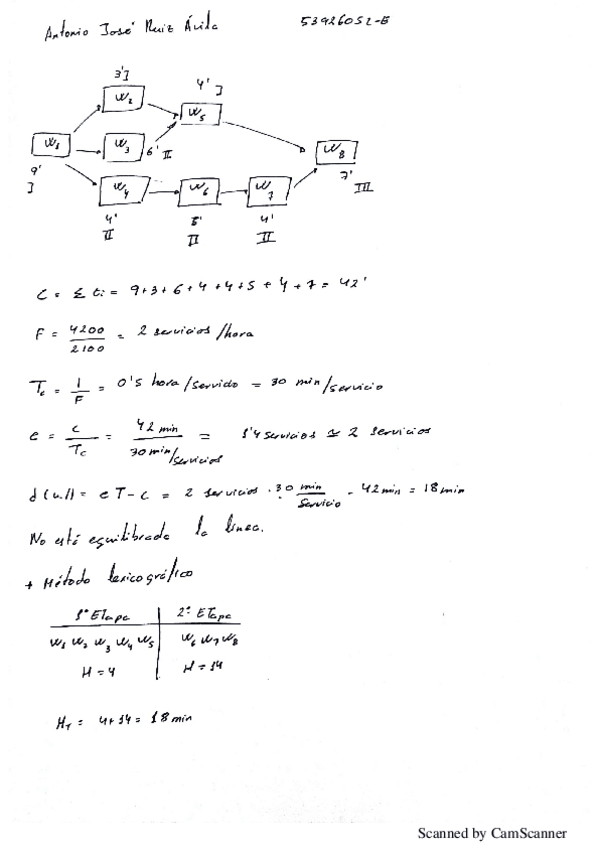 Antonio José Ruiz Ávila 53926052-E
3' I
W2
4' I
W5
W1
W3
6' II
W8
9'
I
7'
III
W4
W6
W7
4'
5'
4'
II
II
II
C = Σ ti = 9+3+6+4+4+5+4+7 = 42'
F = 4200/2100 = 2 servicios/hora
Tc = 1/F = 0'5 hora/servicio = 30 min/servicio
e = C/Tc = 42 min/30 min/servicios = 1'4 servicios ≃ 2 servicios
d(u.l) = eT - c = 2 servicios · 30 min/servicio - 42 min = 18 min
No está equilibrada la línea.
+ Método lexicográfico
1ª Etapa 2ª Etapa
W1 W2 W3 W4 W5 W6 W7 W8
H = 4 H = 14
HT = 4+14 = 18 min
Scanned by CamScanner